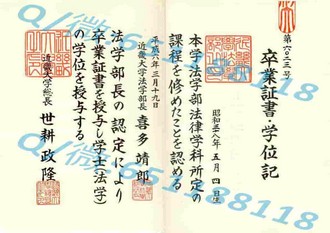 第六〇二三号
卒業証書・学位記
五月四日生
本学法学部法律学科所定の
課程を修めたことを認める
平成八年三月十九日
近畿大学法学部長 喜多靖郎
法学部長の認定により
卒業証書を授与し学士(法学)
の学位を授与する
近畿大学総長 世耕政隆
88118